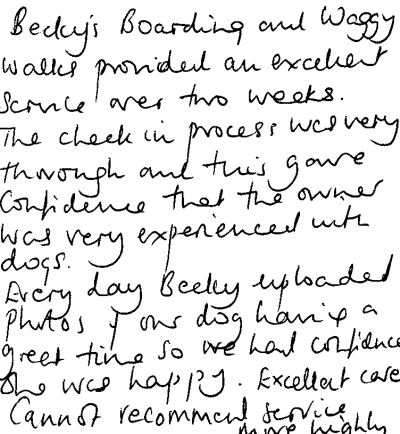 Becky's Boarding and Waggy
Walks provided an excellent
service over two weeks.
The check in process was very
thorough and this gave
confidence that the owner
was very experienced with
dogs.
Every day Becky uploaded
photos of our dog having a
great time so we had confidence
she was happy. Excellent care
Cannot recommend service
more highly